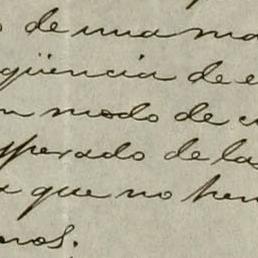 de una ma
güencia de e
n modo de c
sperado de las
que no hen
nos.